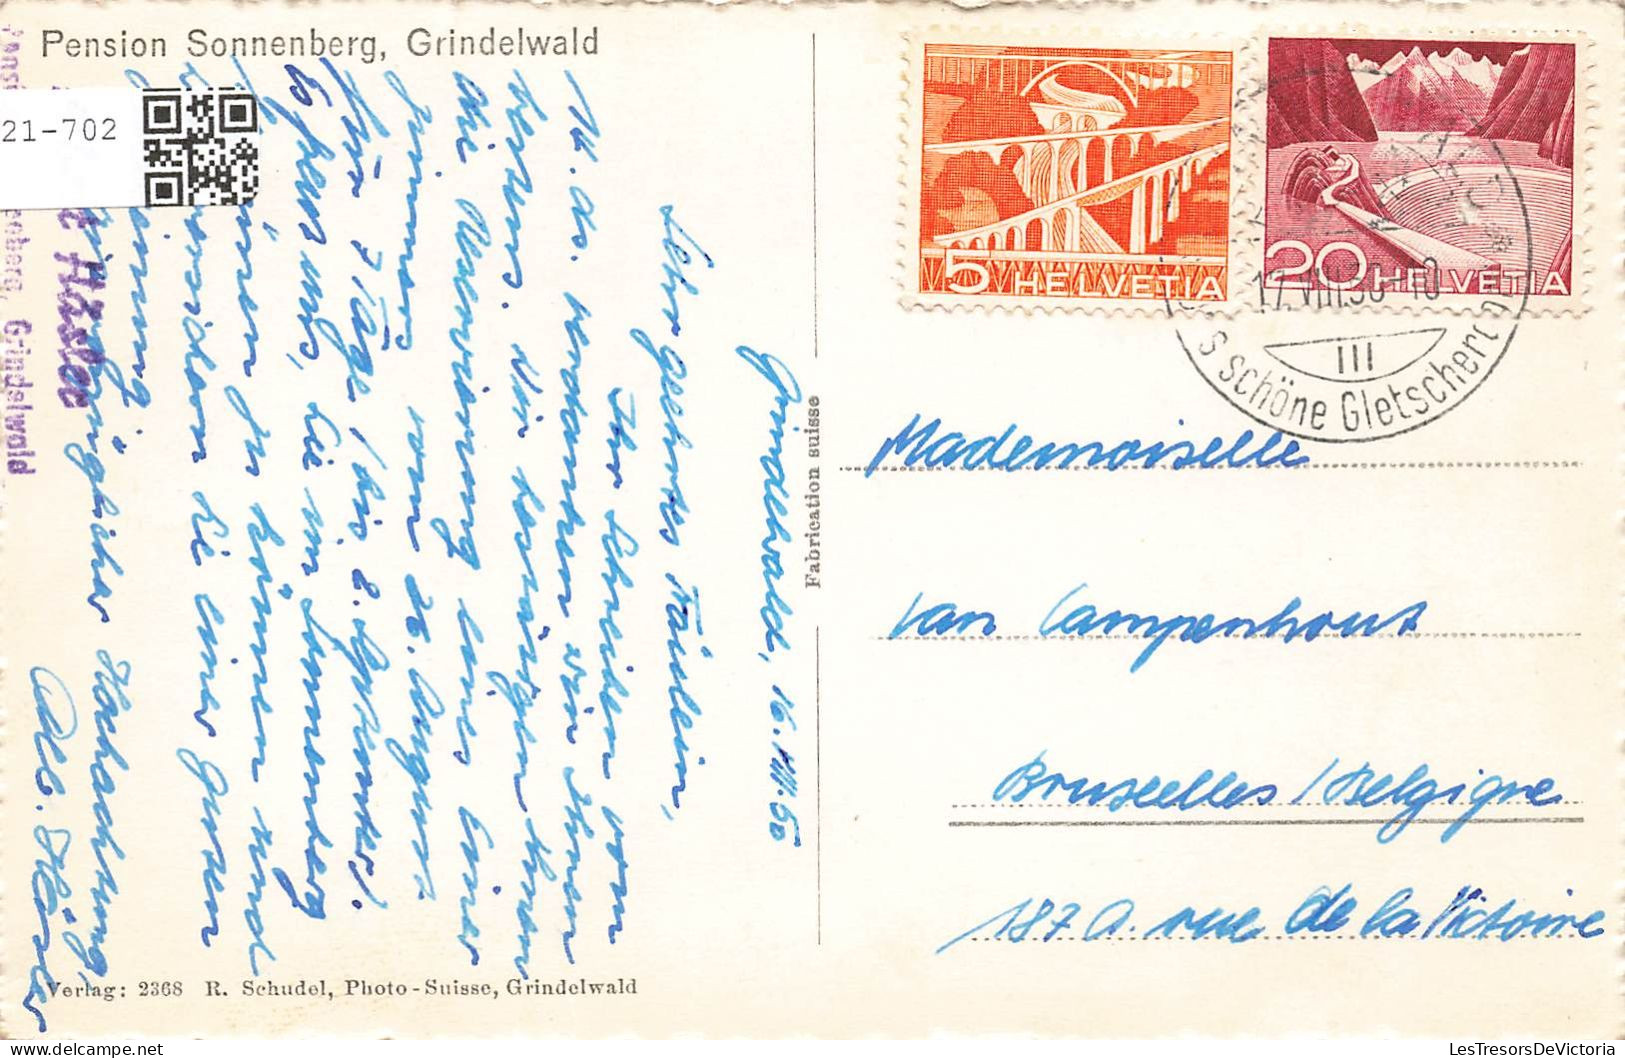 Pension Sonnenberg, Grindelwald
21-702
Grindelwald, 16.VIII.50
Sehr geehrtes Fräulein,
Ihr Schreiben vom
14. ds. verdanken wir Ihnen
bestens. Wir bestätigen Ihnen
die Reservierung eines Einer
zimmers vom 26. August
für 7 Tage (bis 2. September).
Es freut uns, Sie im Sonnenberg
zu können und
Sie einer guten
Hochachtung,
Verlag: 2368 R. Schudel, Photo-Suisse, Grindelwald
Fabrication suisse
5 HELVETIA
20 HELVETIA
17.VIII.50-10
III
s schöne Gletscherd
Mademoiselle
van Campenhout
Bruxelles / Belgique
187 A. rue de la Victoire
Grindelwald
LesTresorsDeVictoria